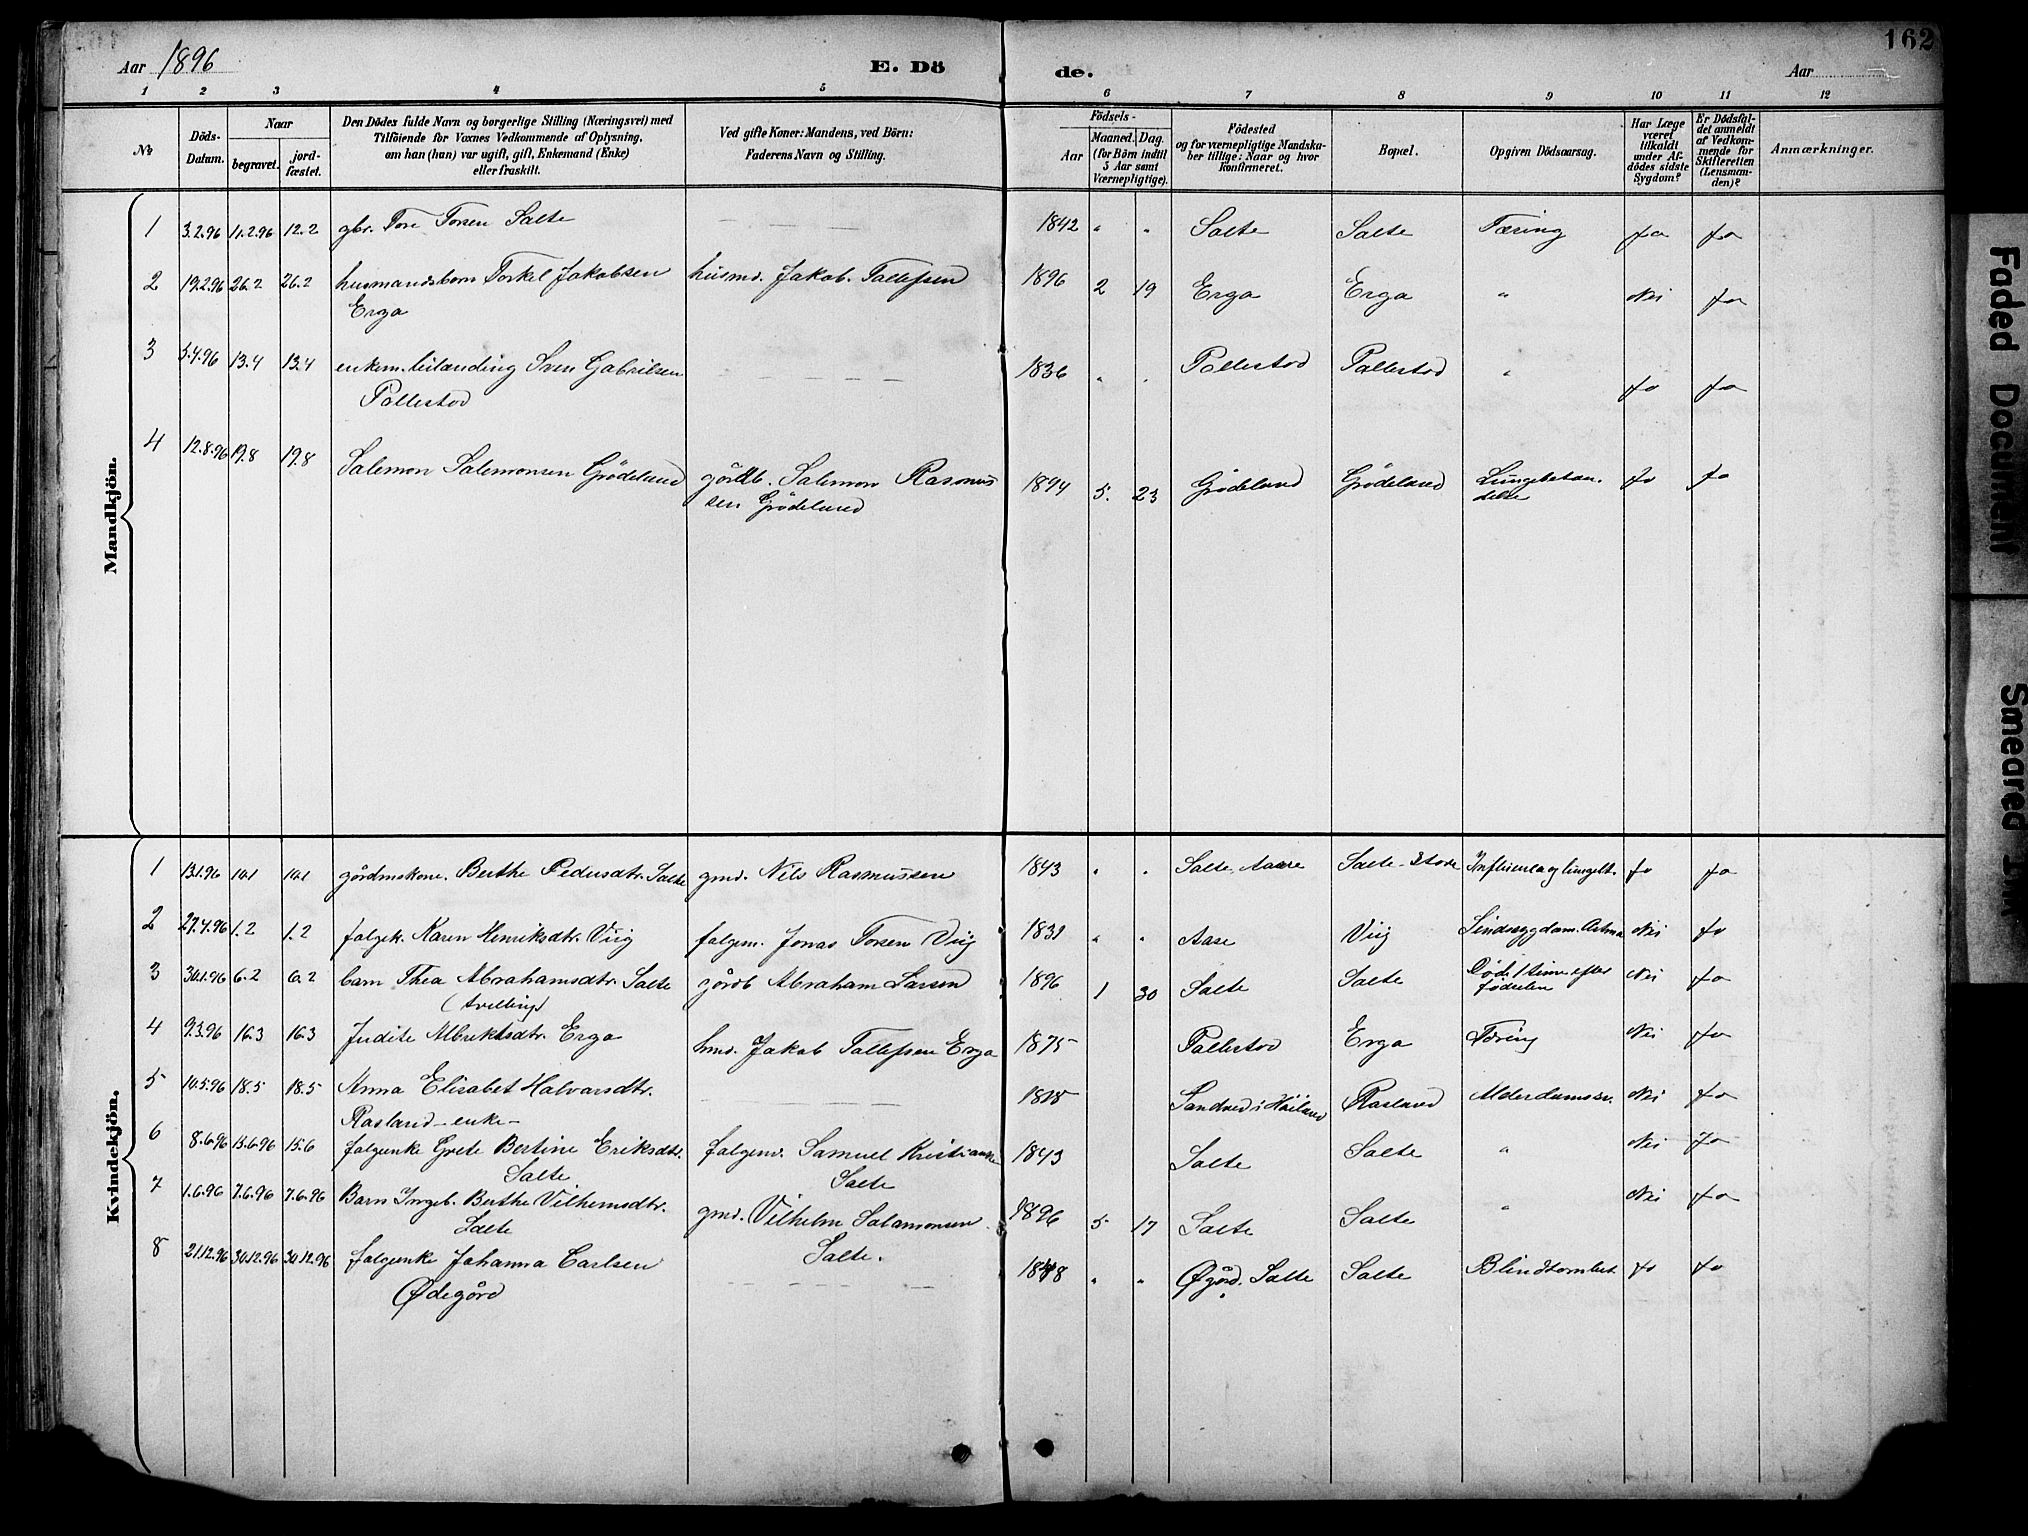 162
Aar 1896 E. Döde. Aar
1 2 3 4 5 6 7 8 9 10 11 12
№
Döds-Datum.
Naar
begravet. jordfæstet.
Den Dödes fulde Navn og borgerlige Stilling (Næringsvei) med
Tilföiende for Voxnes Vedkommende af Oplysning,
om han (hun) var ugift, gift, Enkemand (Enke)
eller fraskilt.
Ved gifte Koner: Mandens, ved Börn:
Faderens Navn og Stilling.
Födsels-
Aar Maaned. Dag.
(for Börn indtil
5 Aar samt
Værnepligtige).
Födested
og for værnepligtige Mandska-
ber tillige: Naar og hvor
konfirmeret.
Bopæl.
Opgiven Dödsaarsag.
Har Læge
været
tilkaldt
under Af-
dödes sidste
Sygdom?
Er Dödsfal-
det anmeldt
af Vedkom-
mende for
Skifteretten
(Lensman-
den)?
Anmærkninger.
Mandkjön.
1 3.2.96 11.2.96 12.2 gbr. Tore Torsen Salte 1842 " " Salte Salte Tæring Ja Ja
2 19.2.96 26.2 26.2 husmandsbarn Torkel Jakobsen husmd. Jakob Tollefsen 1896 2 19 Erga Erga " Nei Ja
Erga
3 5.4.96 13.4 13.4 enkem. Sven Gabrielsen 1836 " " Pollestad Pollestad " Ja Ja
Pollestad
4 12.8.96 19.8 19.8 Salemon Salemonsen Grödeland gårdb. Salemon Rasmus 1894 5. 23 Grödeland Grödeland Lungebetæn- Ja Ja
sen Grödeland delse
Kvindekjön.
1 13.1.96 gårdmskone. Berthe Pedersdtr. Salte gmd. Nils Rasmussen 1843 " " Salte, Aasre Salte - Store Influensa og lungebt. Ja Ja
2 27.4.96 1.2 1.2 folgek. Karen Henriksdtr. Viig folgem. Jonas Torsen Viig 1831 " " Aase Viig Sindssygdom. Astma Nei Ja
3 30.1.96 6.2 6.2 barn Thea Abrahamsdtr. Salte gårdb Abraham Larsen 1896 1 30 Salte Salte Døde 1 time efter Nei Ja
(tvelling) fødselen
4 9.3.96 16.3 16.3 Judite Albriktsdtr. Erga hmd. Jakob Tollefsen Erga 1875 Pollestad Erga Tæring Nei Ja
5 10.5.96 18.5 18.5 Anna Elisabet Halvorsdtr. 1815 Sandved i Höiland Rosland Alderdomssv. Nei Ja
Rosland - enke -
6 8.6.96 15.6.96 15.6 folgenke Grete Bertine Eriksdtr. folgemd. Samuel Kristiansen 1843 Salte Salte " Nei Ja
Salte Salte
7 1.6.96 7.6.96 7.6.96 Barn Ingeb. Berthe Vilhemsdtr. gmd. Vilhelm Salamonsen 1896 5 17 Salte Salte " Nei Ja
Salte Salte.
8 21.12.96 30.12.96 30.12.96 folgenke Johanna Carlsen " " Øgård. Salte Salte Ja Ja
Ødegård
Faded Document
Smeared Ink